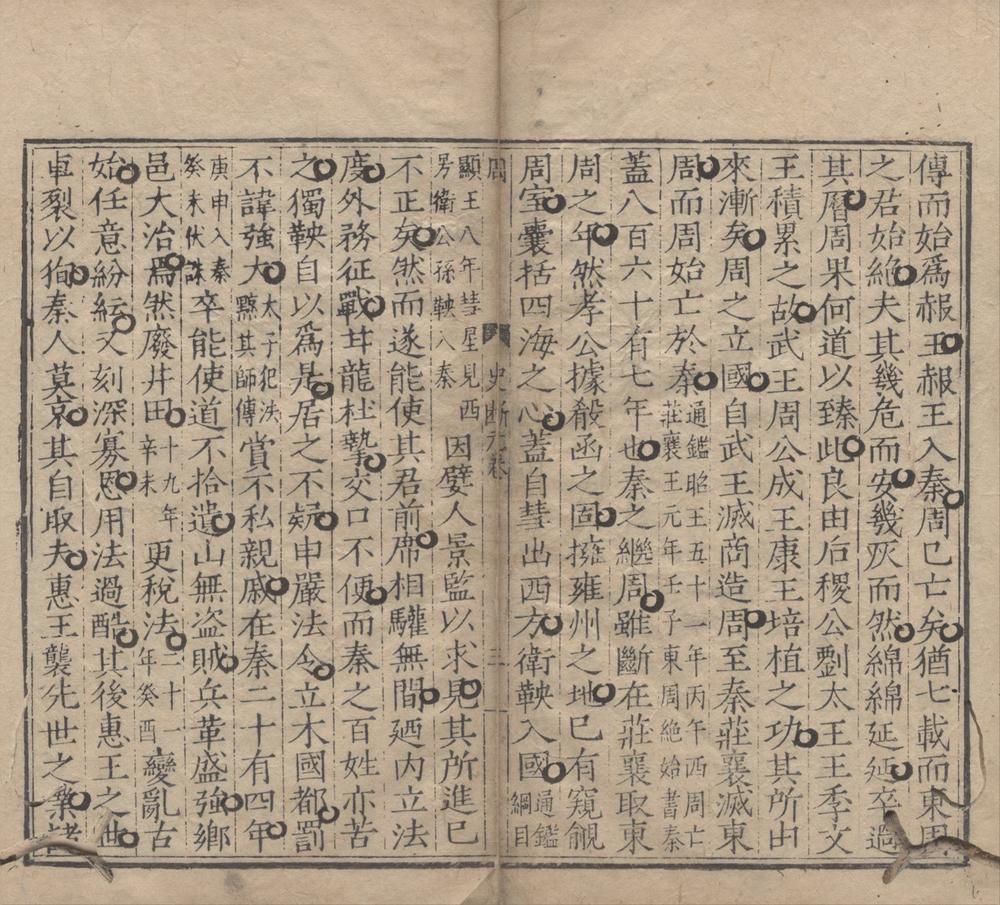 傳而始爲赧王赧王入秦周已亡矣猶七載而東周
之君始絶夫其幾危而安幾灰而然綿綿延延卒過
其曆周果何道以臻此良由后稷公劉太王王季文
王積累之故武王周公成王康王培植之功其所由
來漸矣周之立國自武王滅商造周至秦莊襄滅東
周而周始亡於秦通鑑昭王五十一年丙午西周亡莊襄王元年壬子東周絶始書秦
蓋八百六十有七年也秦之繼周雖斷在莊襄取東
周之年然孝公據殽函之固擁雍州之地已有窺覦
周室囊括四海之心蓋自彗出西方衛鞅入國通鑑綱目
周 史斷九卷 三
顯王八年彗星見西方衛公孫鞅入秦因嬖人景監以求見其所進已
不正矣然而遂能使其君前席相驩無間廼内立法
度外務征戰甘龍杜摯交口不便而秦之百姓亦苦
之獨鞅自以爲是居之不疑申嚴法令立木國都罰
不諱強大太子犯法黥其師傅賞不私親戚在秦二十有四年
庚申入秦癸未伏誅卒能使道不拾遺山無盗賊兵革盛強鄉
邑大治爲然廢井田十九年辛未更稅法二十一年癸酉變亂古
始任意紛紜又刻深寡恩用法過酷其後惠王之世
車裂以狥秦人莫哀其自取夫惠王襲先世之業諸